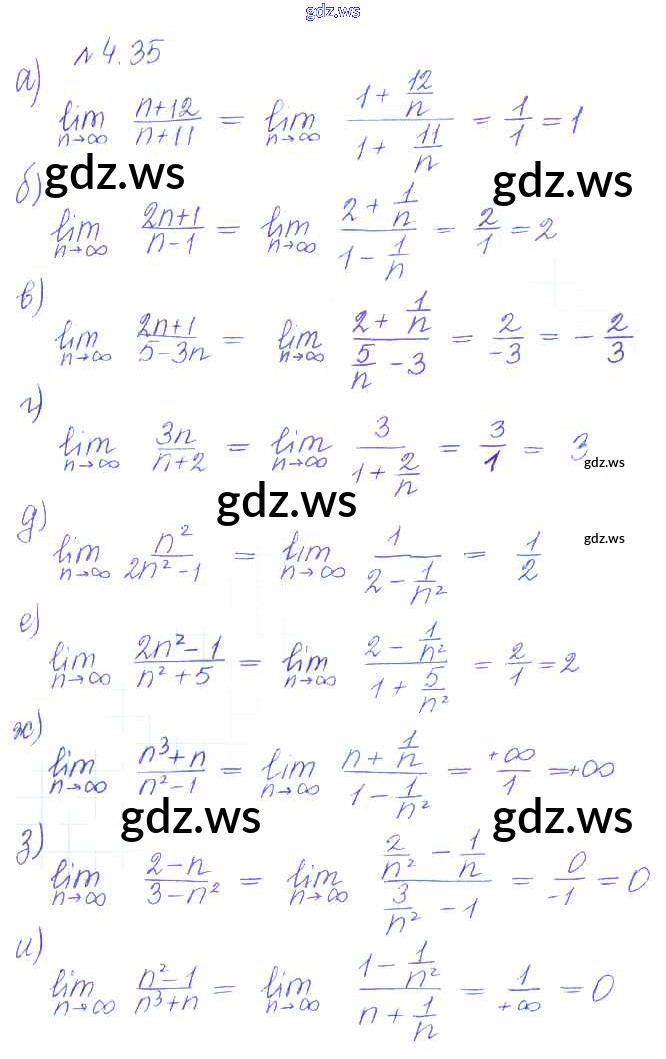 gdz.ws
№ 4.35
а)
lim n→∞ (n+12)/(n+11) = lim n→∞ (1 + 12/n)/(1 + 11/n) = 1/1 = 1
gdz.ws gdz.ws
б)
lim n→∞ (2n+1)/(n-1) = lim n→∞ (2 + 1/n)/(1 - 1/n) = 2/1 = 2
в)
lim n→∞ (2n+1)/(5-3n) = lim n→∞ (2 + 1/n)/(5/n - 3) = 2/-3 = -2/3
г)
lim n→∞ 3n/(n+2) = lim n→∞ 3/(1 + 2/n) = 3/1 = 3
gdz.ws
gdz.ws
д)
lim n→∞ n²/(2n²-1) = lim n→∞ 1/(2 - 1/n²) = 1/2
gdz.ws
е)
lim n→∞ (2n²-1)/(n²+5) = lim n→∞ (2 - 1/n²)/(1 + 5/n²) = 2/1 = 2
ж)
lim n→∞ (n³+n)/(n²-1) = lim n→∞ (n + 1/n)/(1 - 1/n²) = +∞/1 = +∞
gdz.ws gdz.ws
з)
lim n→∞ (2-n)/(3-n²) = lim n→∞ (2/n² - 1/n)/(3/n² - 1) = 0/-1 = 0
и)
lim n→∞ (n²-1)/(n³+n) = lim n→∞ (1 - 1/n²)/(n + 1/n) = 1/+∞ = 0